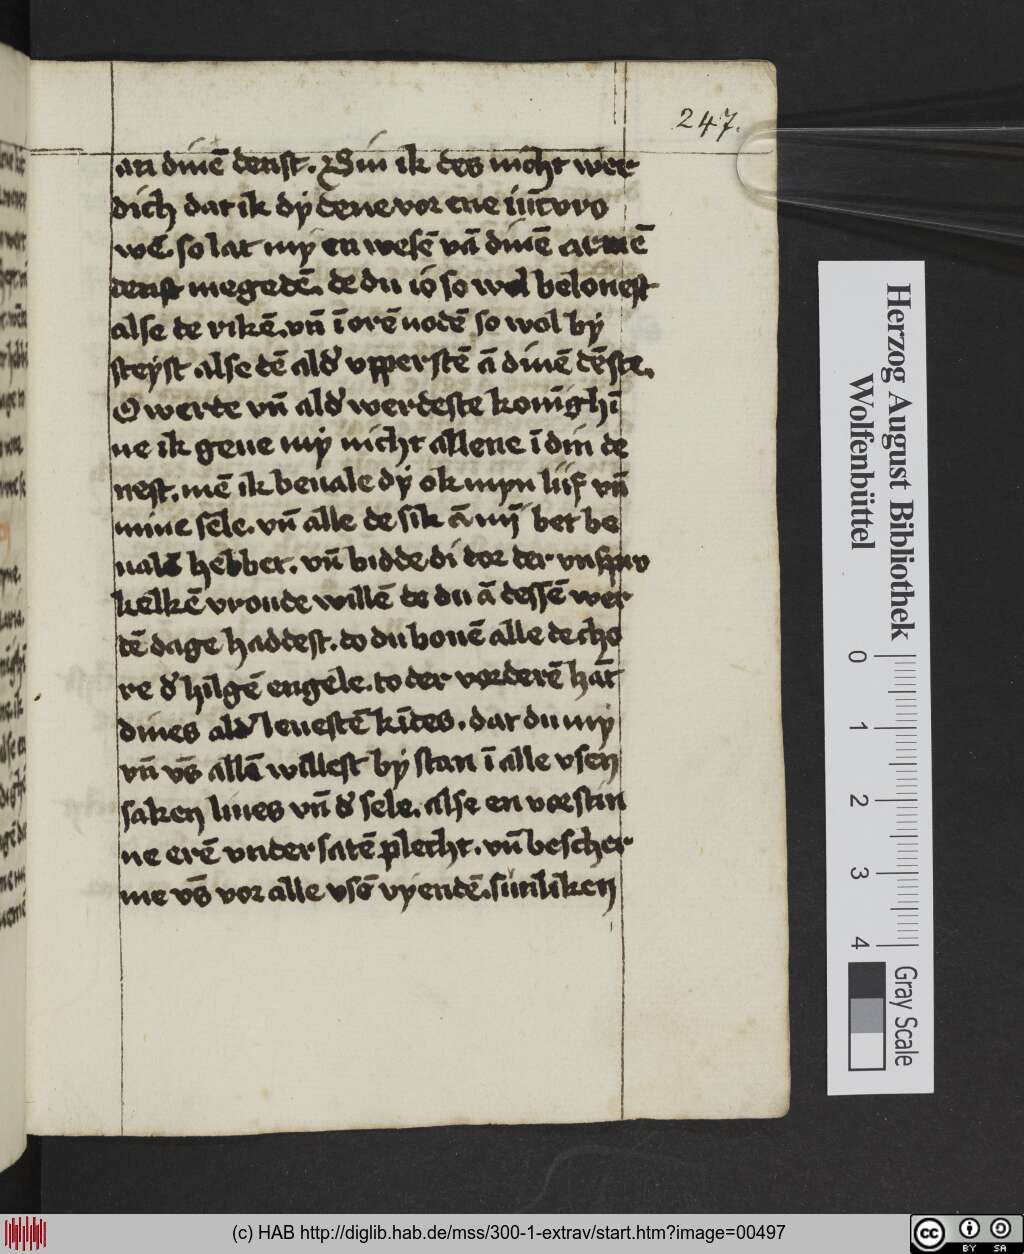 247.
an dinē denst. Bin ik des nicht wer
dich dat ik dÿ dene vor ene iūcvro
wē. so lat mÿ en wesē vā dinē armē
denst megedē. de du io so wol belonest
alse de rikē. vn̄ ī orē nodē so wol bÿ
steÿst alse dē ald' vpperstē ā dinē dēste.
O werde vn̄ ald' werdeste konīghī
ne ik geue mÿ nicht allene ī din de
nest. mē ik beuale dÿ ok mÿn liif vn̄
mine sēle. vn̄ alle de sik ā mÿ bet be
ualē hebbet. vn̄ bidde di dor der vnspre
kelkē vroude willē de du ā dessē wer
dē dage haddest. do du bouē alle de cho
re d' hilgē engele. to der vorderē hāt
dines ald' leuestē kīdes. dat du mÿ
vn̄ vs̄ allē willest bÿ stan ī alle vsen
saken liues vn̄ d' sele. alse en vorstin
ne erē vndersatē plecht. vn̄ bescher
me vs̄ vor alle vsē vÿendē. sunliken
Herzog August Bibliothek
Wolfenbüttel
0 1 2 3 4
Gray Scale
(c) HAB http://diglib.hab.de/mss/300-1-extrav/start.htm?image=00497
cc BY SA